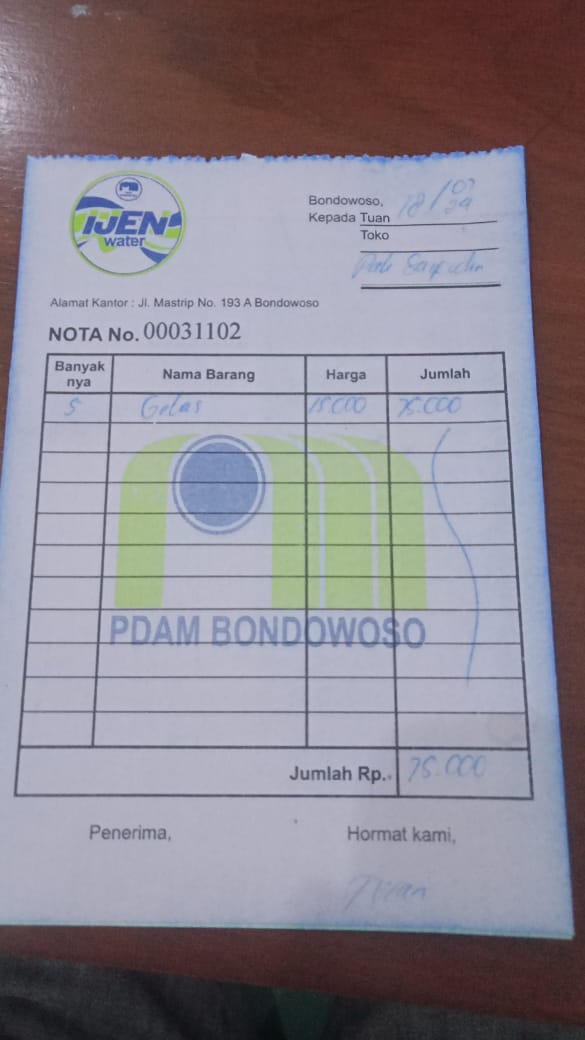 IJEN
water
Bondowoso, 18/07
24
Kepada Tuan
Toko
Pak
Alamat Kantor : Jl. Mastrip No. 193 A Bondowoso
NOTA No. 00031102
Banyak nya Nama Barang Harga Jumlah
5 Gelas 15.000 75.000
PDAM BONDOWOSO
Jumlah Rp. 75.000
Penerima, Hormat kami,